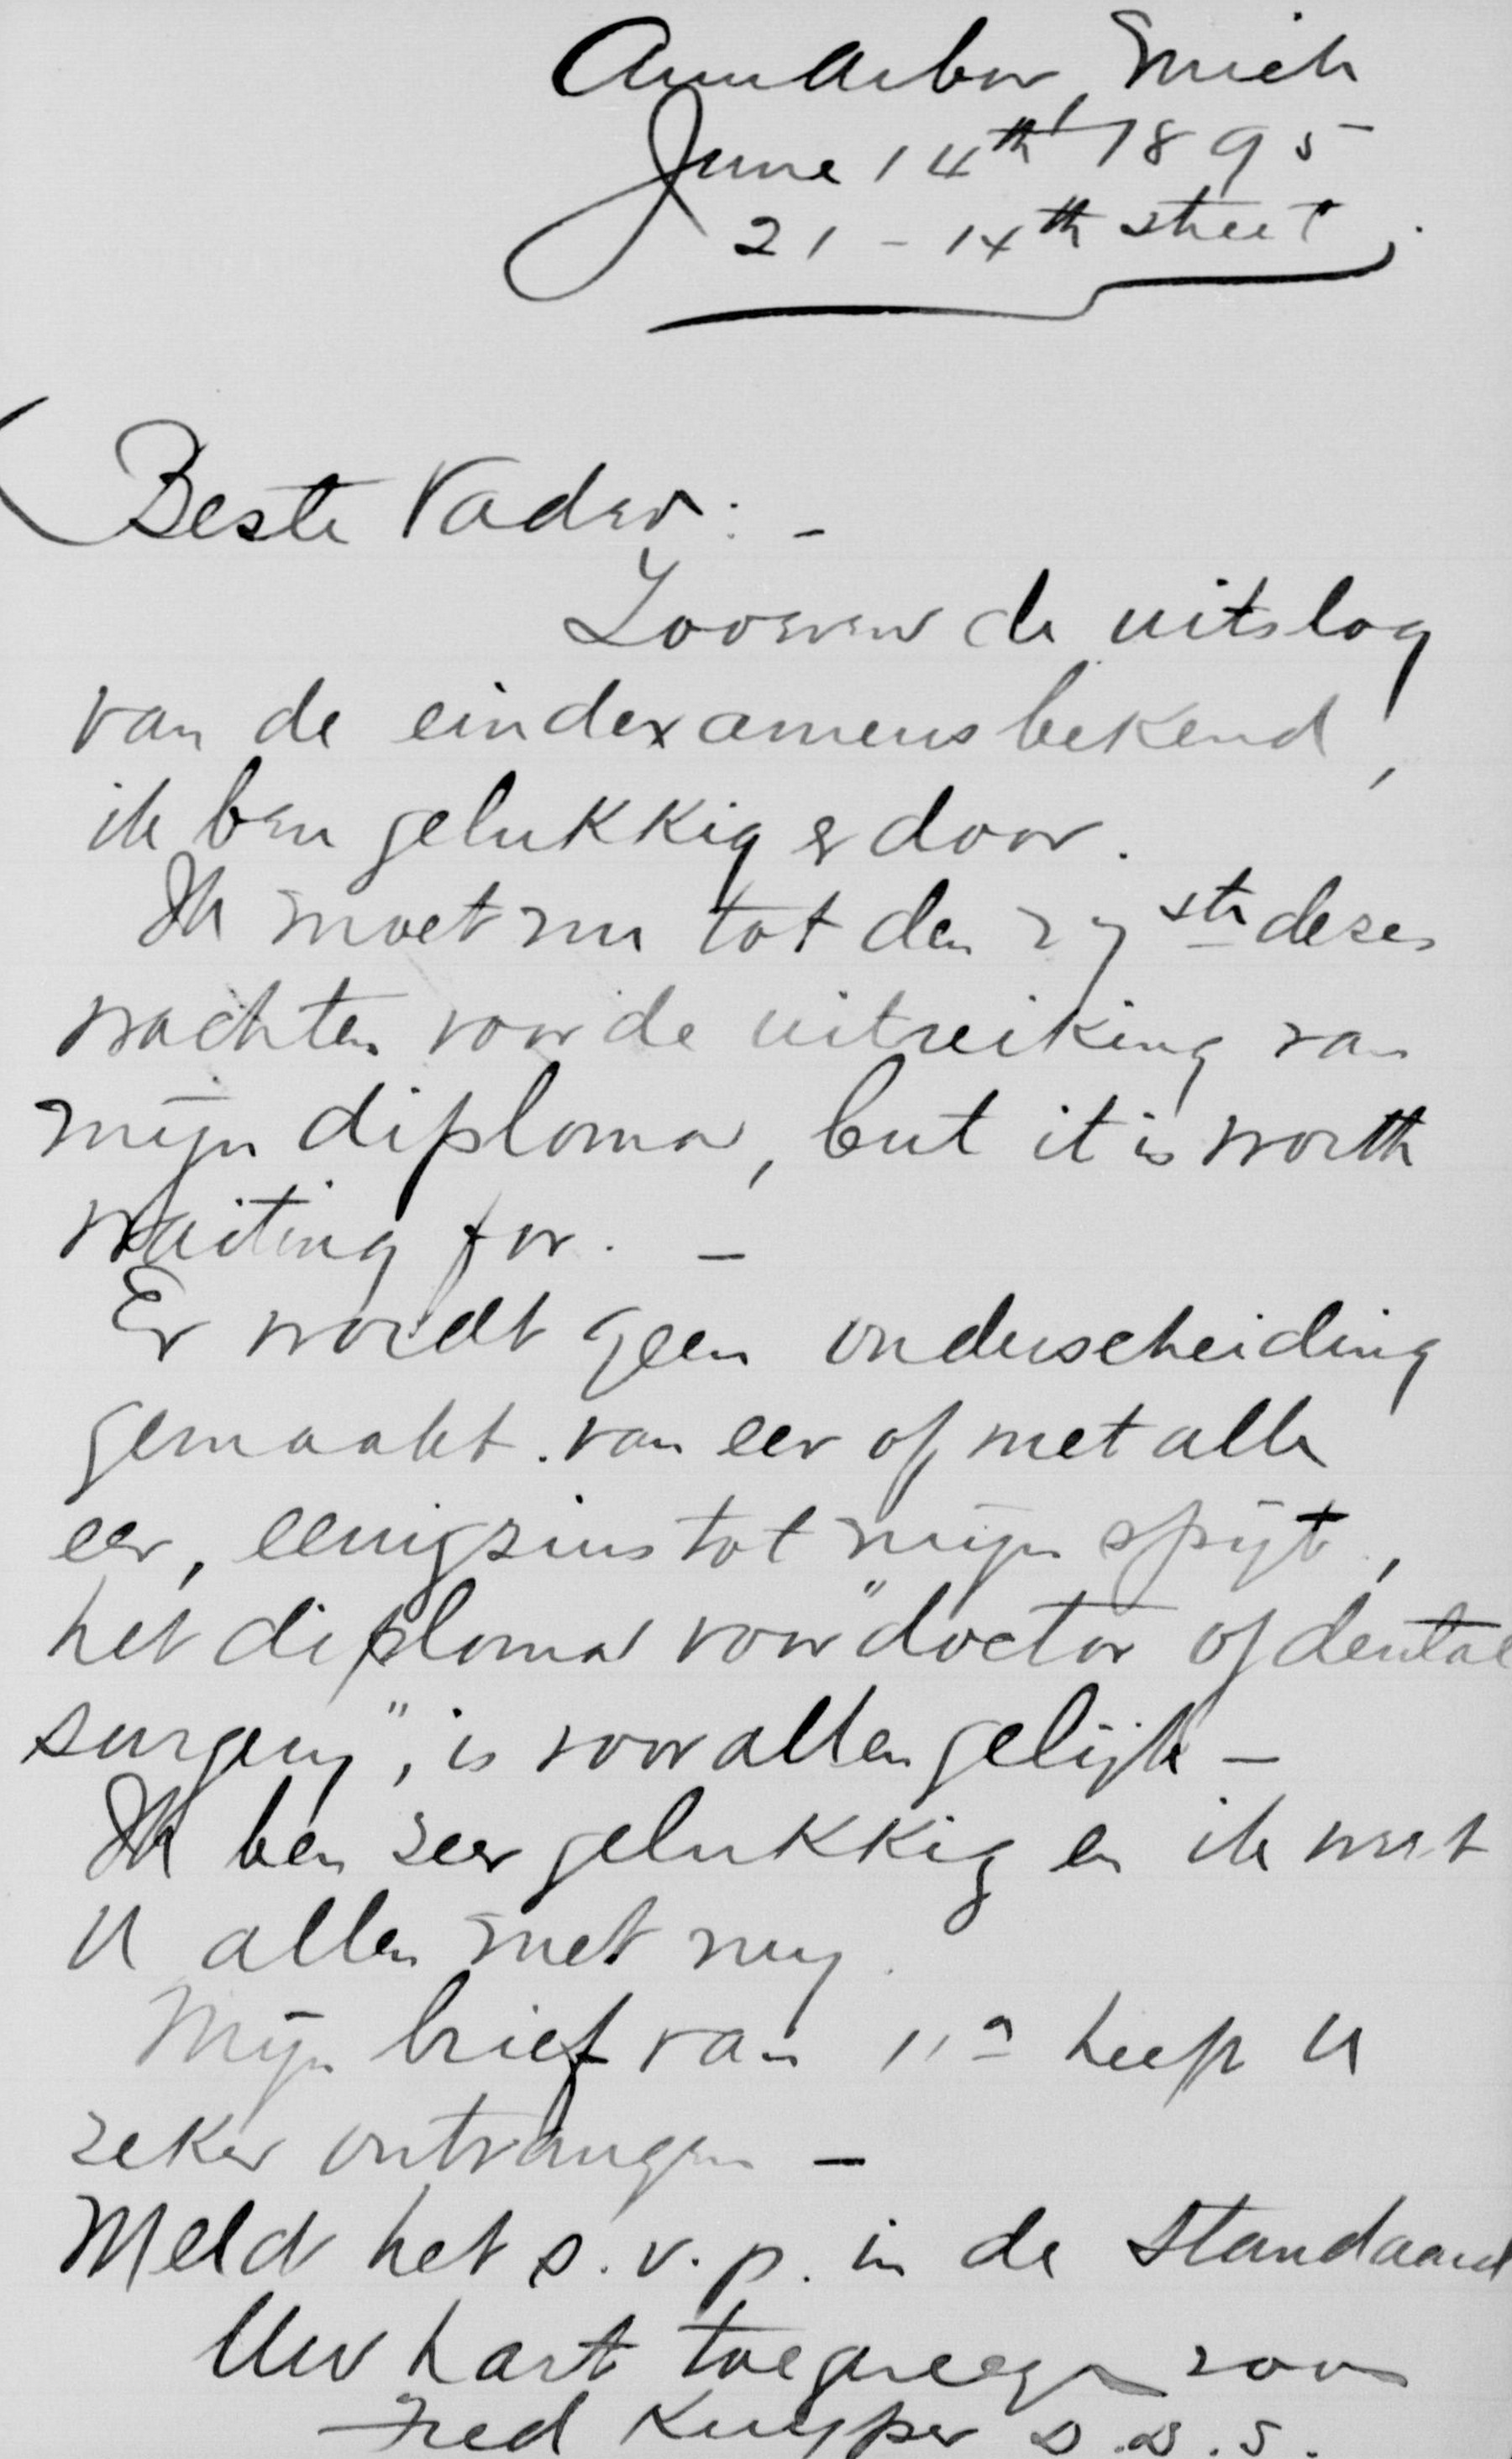 Ann Arbor, Mich
June 14th 1895
21 - 14th street.
Beste Vader: -
Zooeven de uitslag
van de eindexamens bekend,
ik ben gelukkig er door.
Ik moet nu tot den 27ste dezer
wachten voor de uitreiking van
mijn diploma, but it is worth
waiting for. -
Er wordt geen onderscheiding
gemaakt van eer of met alle
eer, eenigzins tot mijn spijt,
het diploma voor "doctor of dental
surgery", is voor allen gelijk -
Ik ben zeer gelukkig en ik weet
U allen met mij.
Mijn brief van 11n heeft U
zeker ontvangen -
Meld het s.v.p. in de Standaard
Uw hart toegenegen zoon
Fred Kuyper D.D.S.